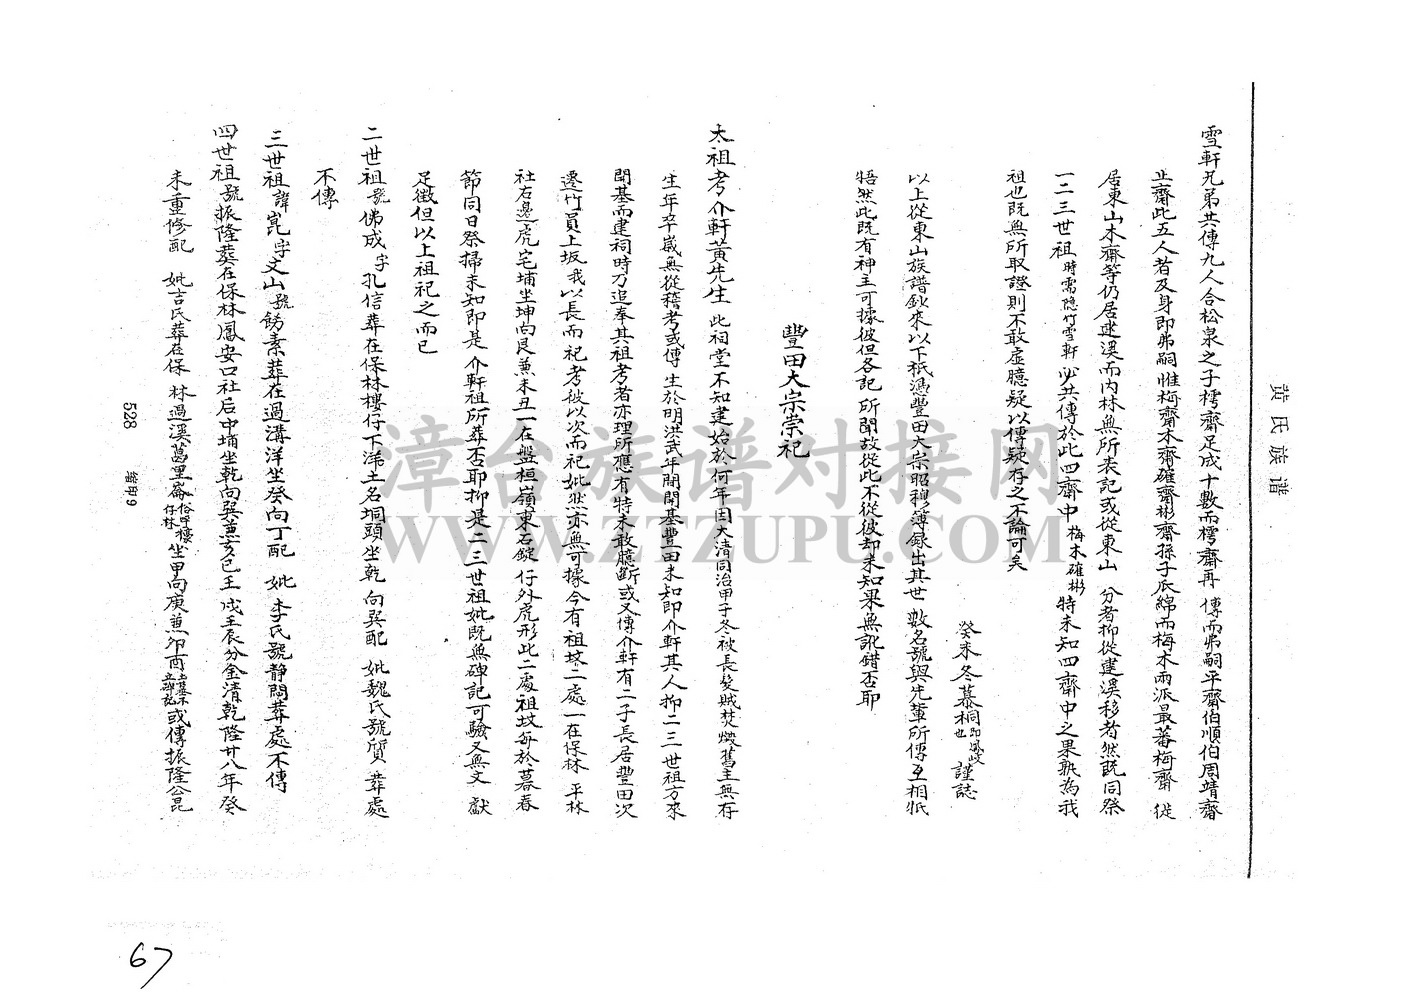 黄氏族谱
雪軒兄弟共傳九人合松泉之子樗齋足成十數而樗齋再傳而弗嗣平齋伯順伯周靖齋
止齋此五人者及身即弗嗣惟梅齋木齋確齋彬齋孫子瓜綿而梅木兩派最蕃梅齋從
居東山木齋等仍居建溪而內林無所表記或從東山分者抑從建溪移者然既同祭
一二三世祖時需隐竹雪軒必共傳於此四齋中梅木確彬特未知四齋中之果孰為我
祖也既無所取證則不敢虛臆疑以傳疑存之不論可矣
癸未冬暮桐即鳳岐也謹誌
以上從東山族譜鈔來以下祇憑豐田大宗昭穆簿錄出其世數名號與先輩所傳互相牴
牾然此既有神主可據彼但各記所聞故從此不從彼却未知果無訛錯否耶
豐田大宗崇祀
太祖考介軒黃先生此祠堂不知建始於何年因大清同治甲子冬被長髮賊焚燬舊主無存
生年卒歲無從稽考或傳生於明洪武年間開基豐田未知即介軒其人抑二三世祖方來
開基而建祠時乃追奉其祖考者亦理所應有特未敢臆斷或又傳介軒有二子長居豐田次
遷竹員上坂我以長而祀考彼以次而祀妣然亦無可據今有祖坟二處一在保林平林
社右邊虎宅埔坐坤向艮兼未丑一在盤桓嶺東石錠仔外虎形此二處祖坟每於暮春
節同日祭掃未知即是介軒祖所葬否耶抑是二三世祖妣既無碑記可驗又無文獻
足徵但以上祖祀之而已
二世祖號佛成字孔信葬在保林樓仔下涕土名垌頭坐乾向巽配妣魏氏號質葬處
不傳
三世祖諱崑字文山號魴素葬在過溝洋坐癸向丁配妣李氏號靜閒葬處不傳
四世祖號振隆葬在保林鳳安口社后中埔坐乾向巽兼亥巳壬戌壬辰分金清乾隆廿八年癸
未重修配妣吉氏葬在保林過溪葛里崙俗呼樓仔林坐甲向庚兼卯酉或傳振隆公昆
528
缩印9
67
漳台族谱对接网
WWW.ZTZUPU.COM